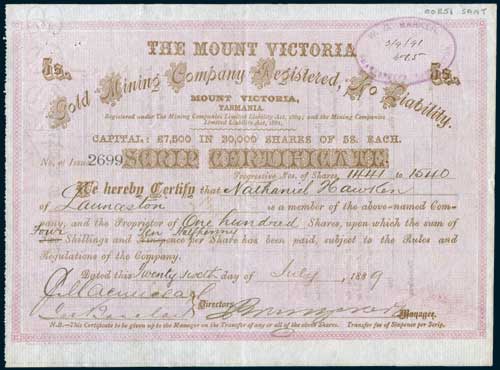 OORS1 SANT
THE MOUNT VICTORIA
5s. 5s.
Gold Mining Company Registered, No Liability.
MOUNT VICTORIA,
TASMANIA.
Registered under The Mining Companies Limited Liability Act, 1884; and the Mining Companies
Limited Liability Act, 1881.
CAPITAL: £7,500 IN 30,000 SHARES OF 5s. EACH.
No. of Issue 2699 SCRIP CERTIFICATE
Progressive Nos. of Shares 1441 to 1540
We hereby Certify that Nathaniel Hawken
of Launceston is a member of the above-named Com-
pany, and the Proprietor of One hundred Shares, upon which the sum of
Four Shillings and Ten Halfpenny per Share has been paid, subject to the Rules and
Regulations of the Company.
Dated this Twenty sixth day of July 1889
Directors.
Manager.
N.B.—This Certificate to be given up to the Manager on the Transfer of any or all of the above Shares. Transfer fee of Sixpence per Scrip.